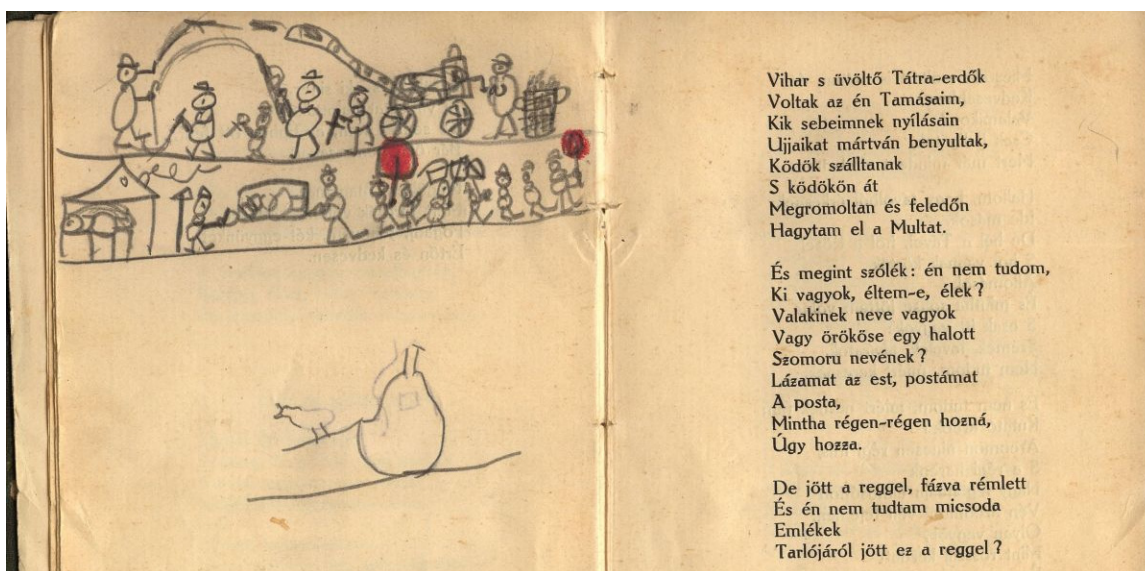 Értőn és kedvesen.
Vihar s üvöltő Tátra-erdők
Voltak az én Tamásaim,
Kik sebeimnek nyílásain
Ujjaikat mártván benyultak,
Ködök szálltanak
S ködökön át
Megromoltan és feledőn
Hagytam el a Multat.
És megint szólék: én nem tudom,
Ki vagyok, éltem-e, élek?
Valakinek neve vagyok
Vagy örököse egy halott
Szomoru nevének?
Lázamat az est, postámat
A posta,
Mintha régen-régen hozná,
Úgy hozza.
De jött a reggel, fázva rémlett
És én nem tudtam micsoda
Emlékek
Tarlójáról jött ez a reggel?